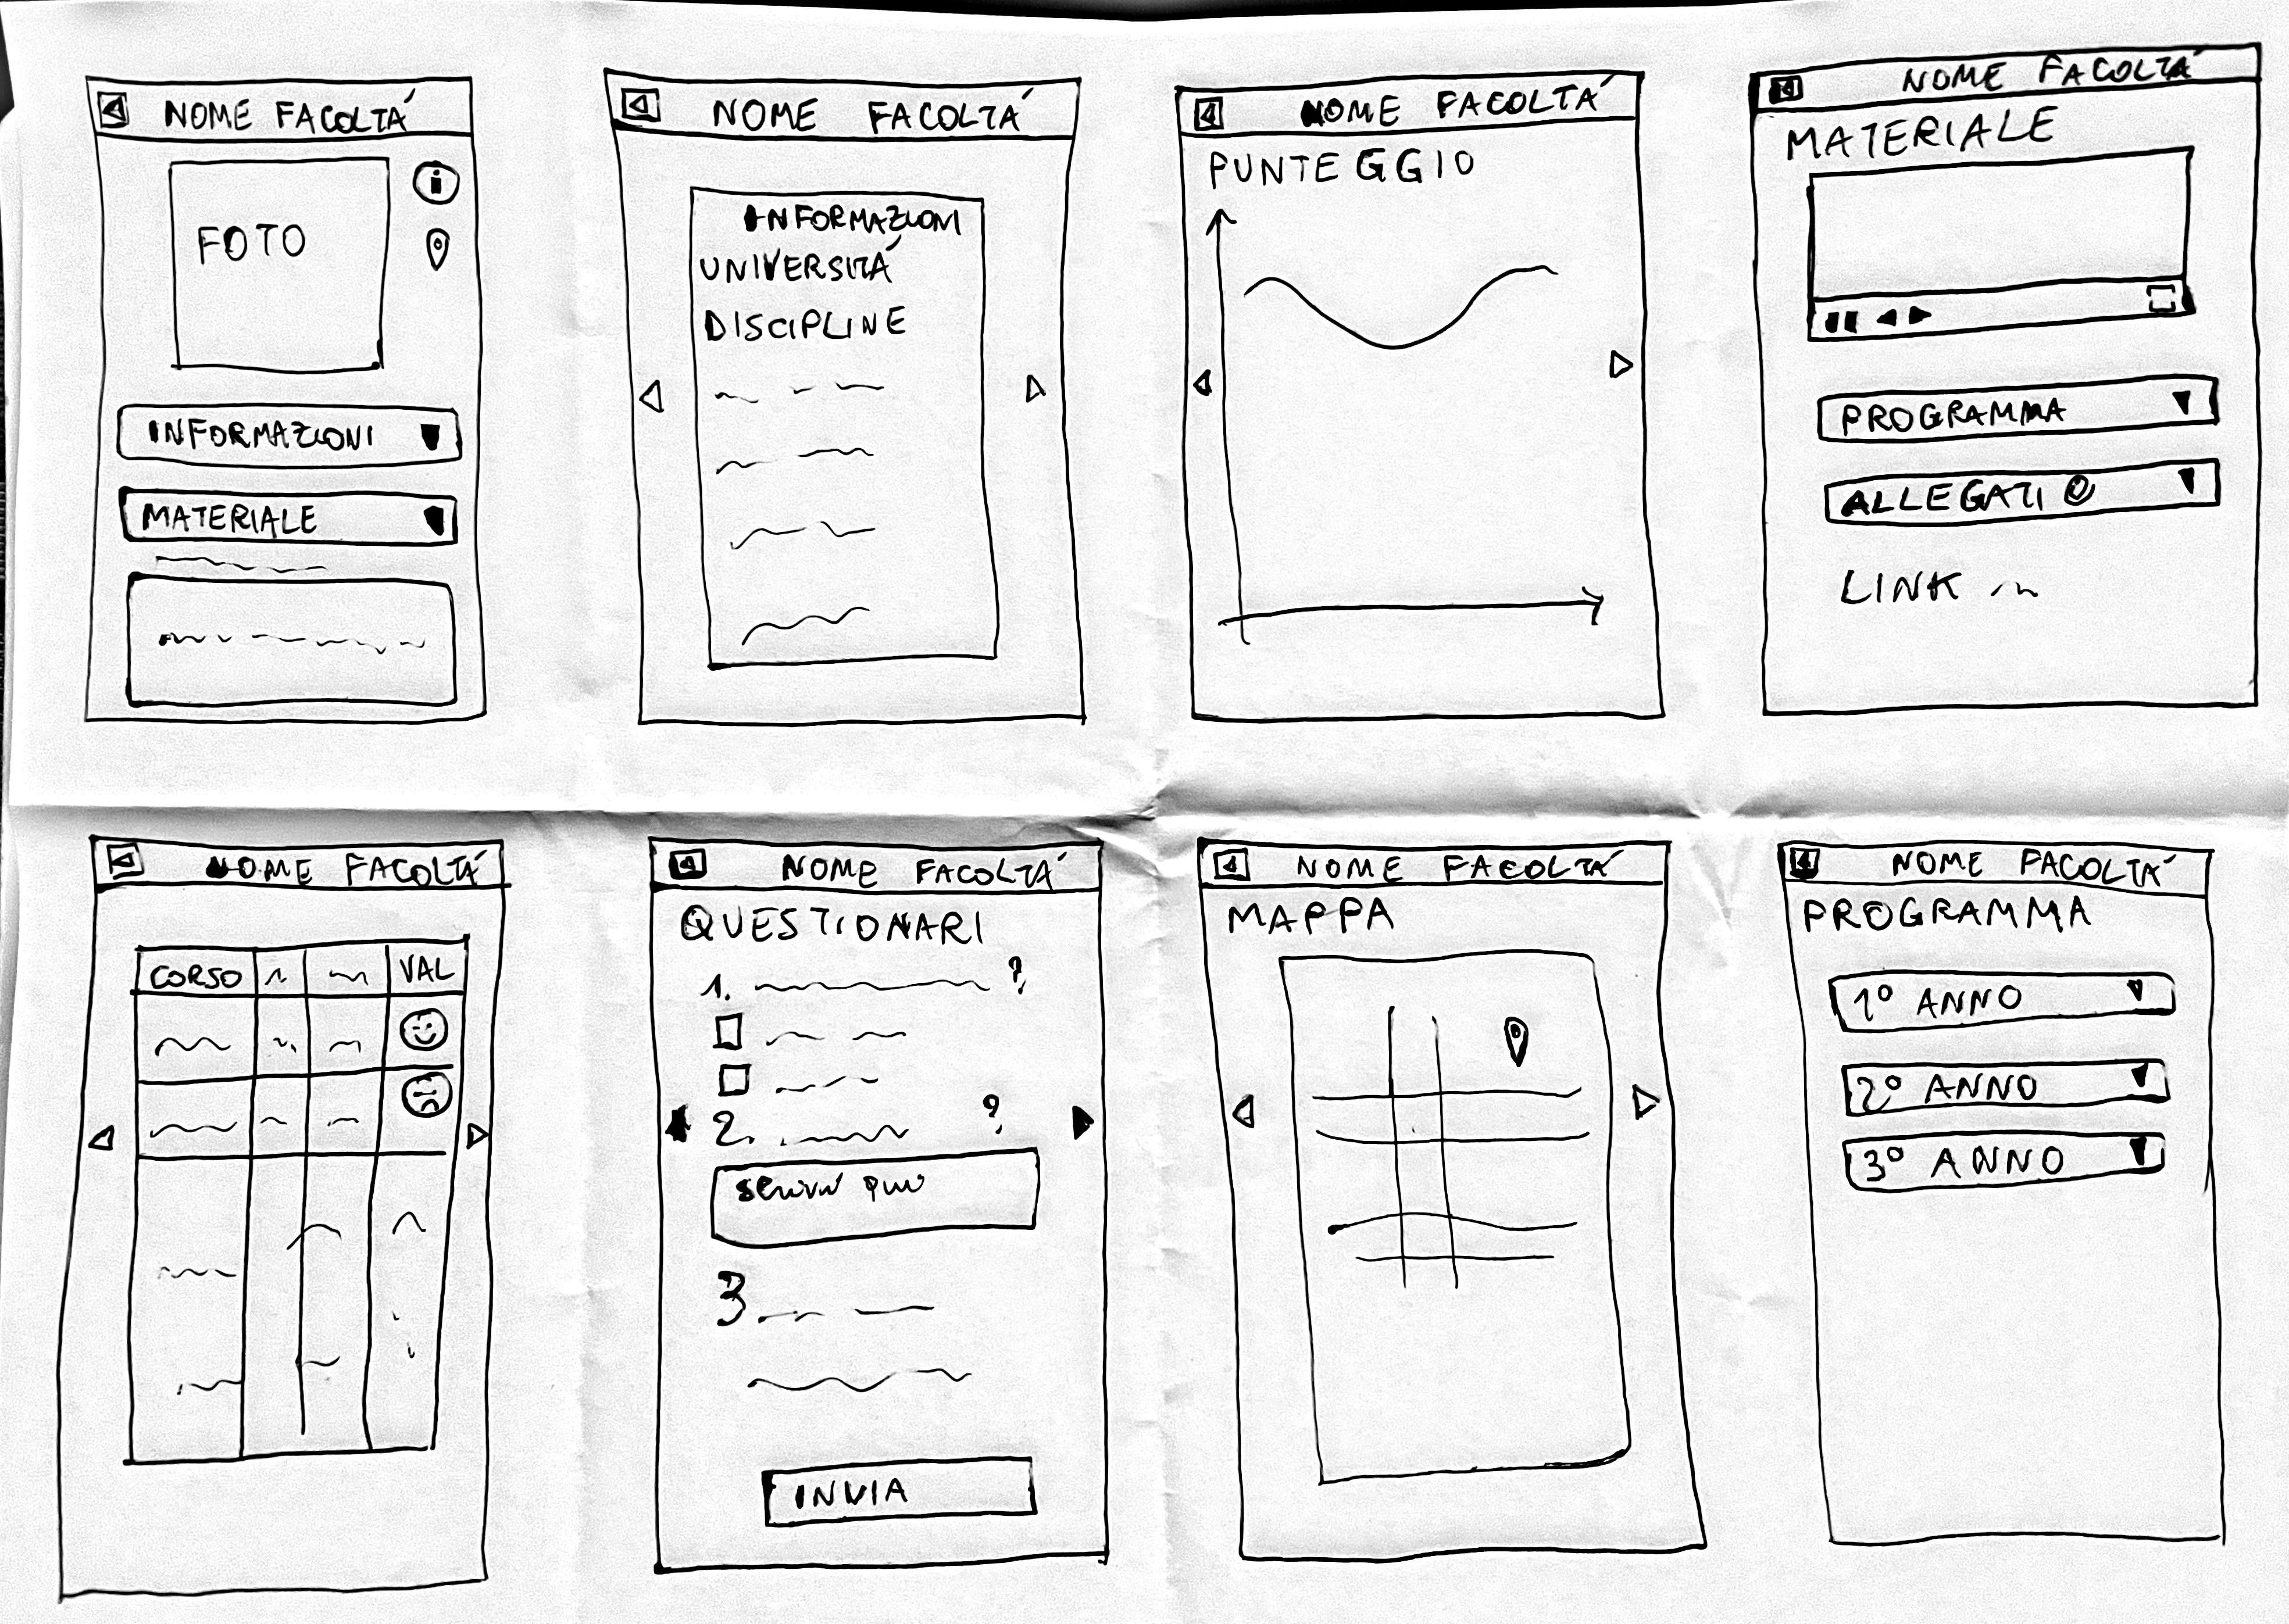 NOME FACOLTÁ
FOTO
i
INFORMAZIONI
MATERIALE
NOME FACOLTÁ
INFORMAZIONI
UNIVERSITÁ
DISCIPLINE
NOME FACOLTÁ
PUNTEGGIO
NOME FACOLTÁ
MATERIALE
PROGRAMMA
ALLEGATI
LINK
NOME FACOLTÁ
CORSO VAL
NOME FACOLTÁ
QUESTIONARI
1. ?
2. ?
scrivi qui
3
INVIA
NOME FACOLTÁ
MAPPA
NOME FACOLTÁ
PROGRAMMA
1º ANNO
2º ANNO
3º ANNO